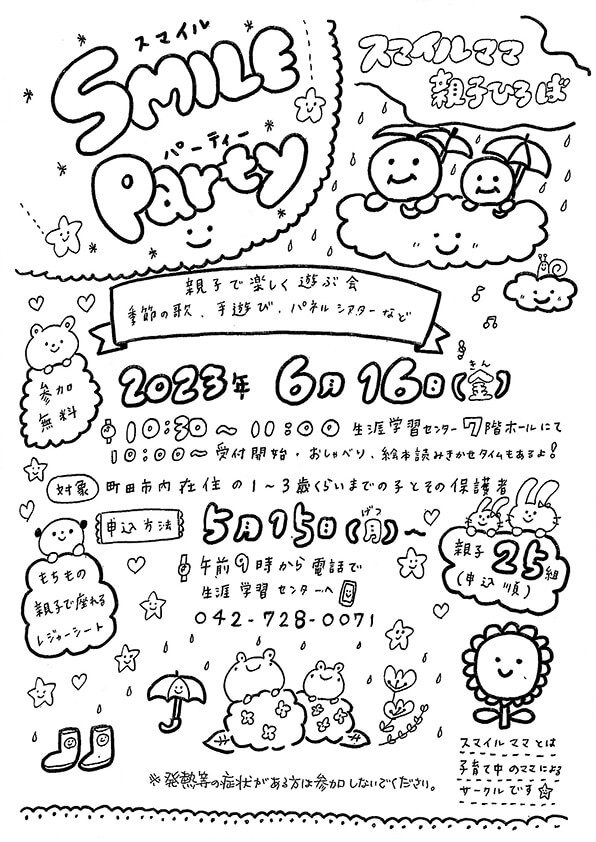 スマイル
SMILE
パーティー
Party
スマイルママ
親子ひろば
親子で楽しく遊ぶ会
季節の歌、手遊び、パネルシアターなど
参加
無料
2023年 6月16日(金)
きん
10:30〜11:00 生涯学習センター7階ホールにて
10:00〜受付開始・おしゃべり、絵本読みきかせタイムもあるよ!
対象 町田市内在住の1〜3歳くらいまでの子とその保護者
申込方法 5月15日(月)〜
げつ
午前9時から電話で
生涯学習センターへ
042-728-0071
親子25組
(申込順)
もちもの
親子で座れる
レジャーシート
スマイルママとは
子育て中のママによる
サークルです☆
※発熱等の症状がある方は参加しないでください。